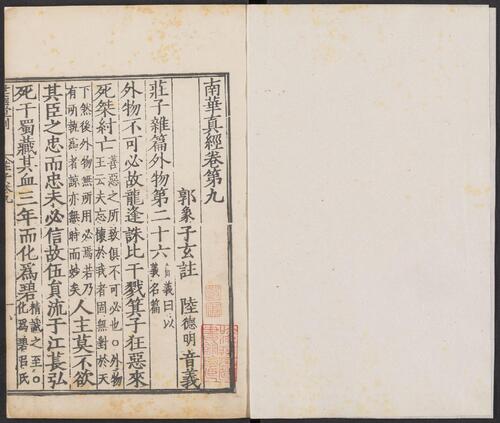 南華真經卷第九
郭象子玄註　陸德明音義
莊子雜篇外物第二十六義曰以義名篇
外物不可必故龍逢誅比干戮箕子狂惡來
死桀紂亡善惡之所致俱不可必也○外物王云夫忘懷於我者固無對於天
下然後外物無所用必焉若乃有所執為者諒亦無時而妙矣人主莫不欲
其臣之忠而忠未必信故伍員流于江萇弘
死于蜀藏其血三年而化為碧精誠之至○化為碧呂氏